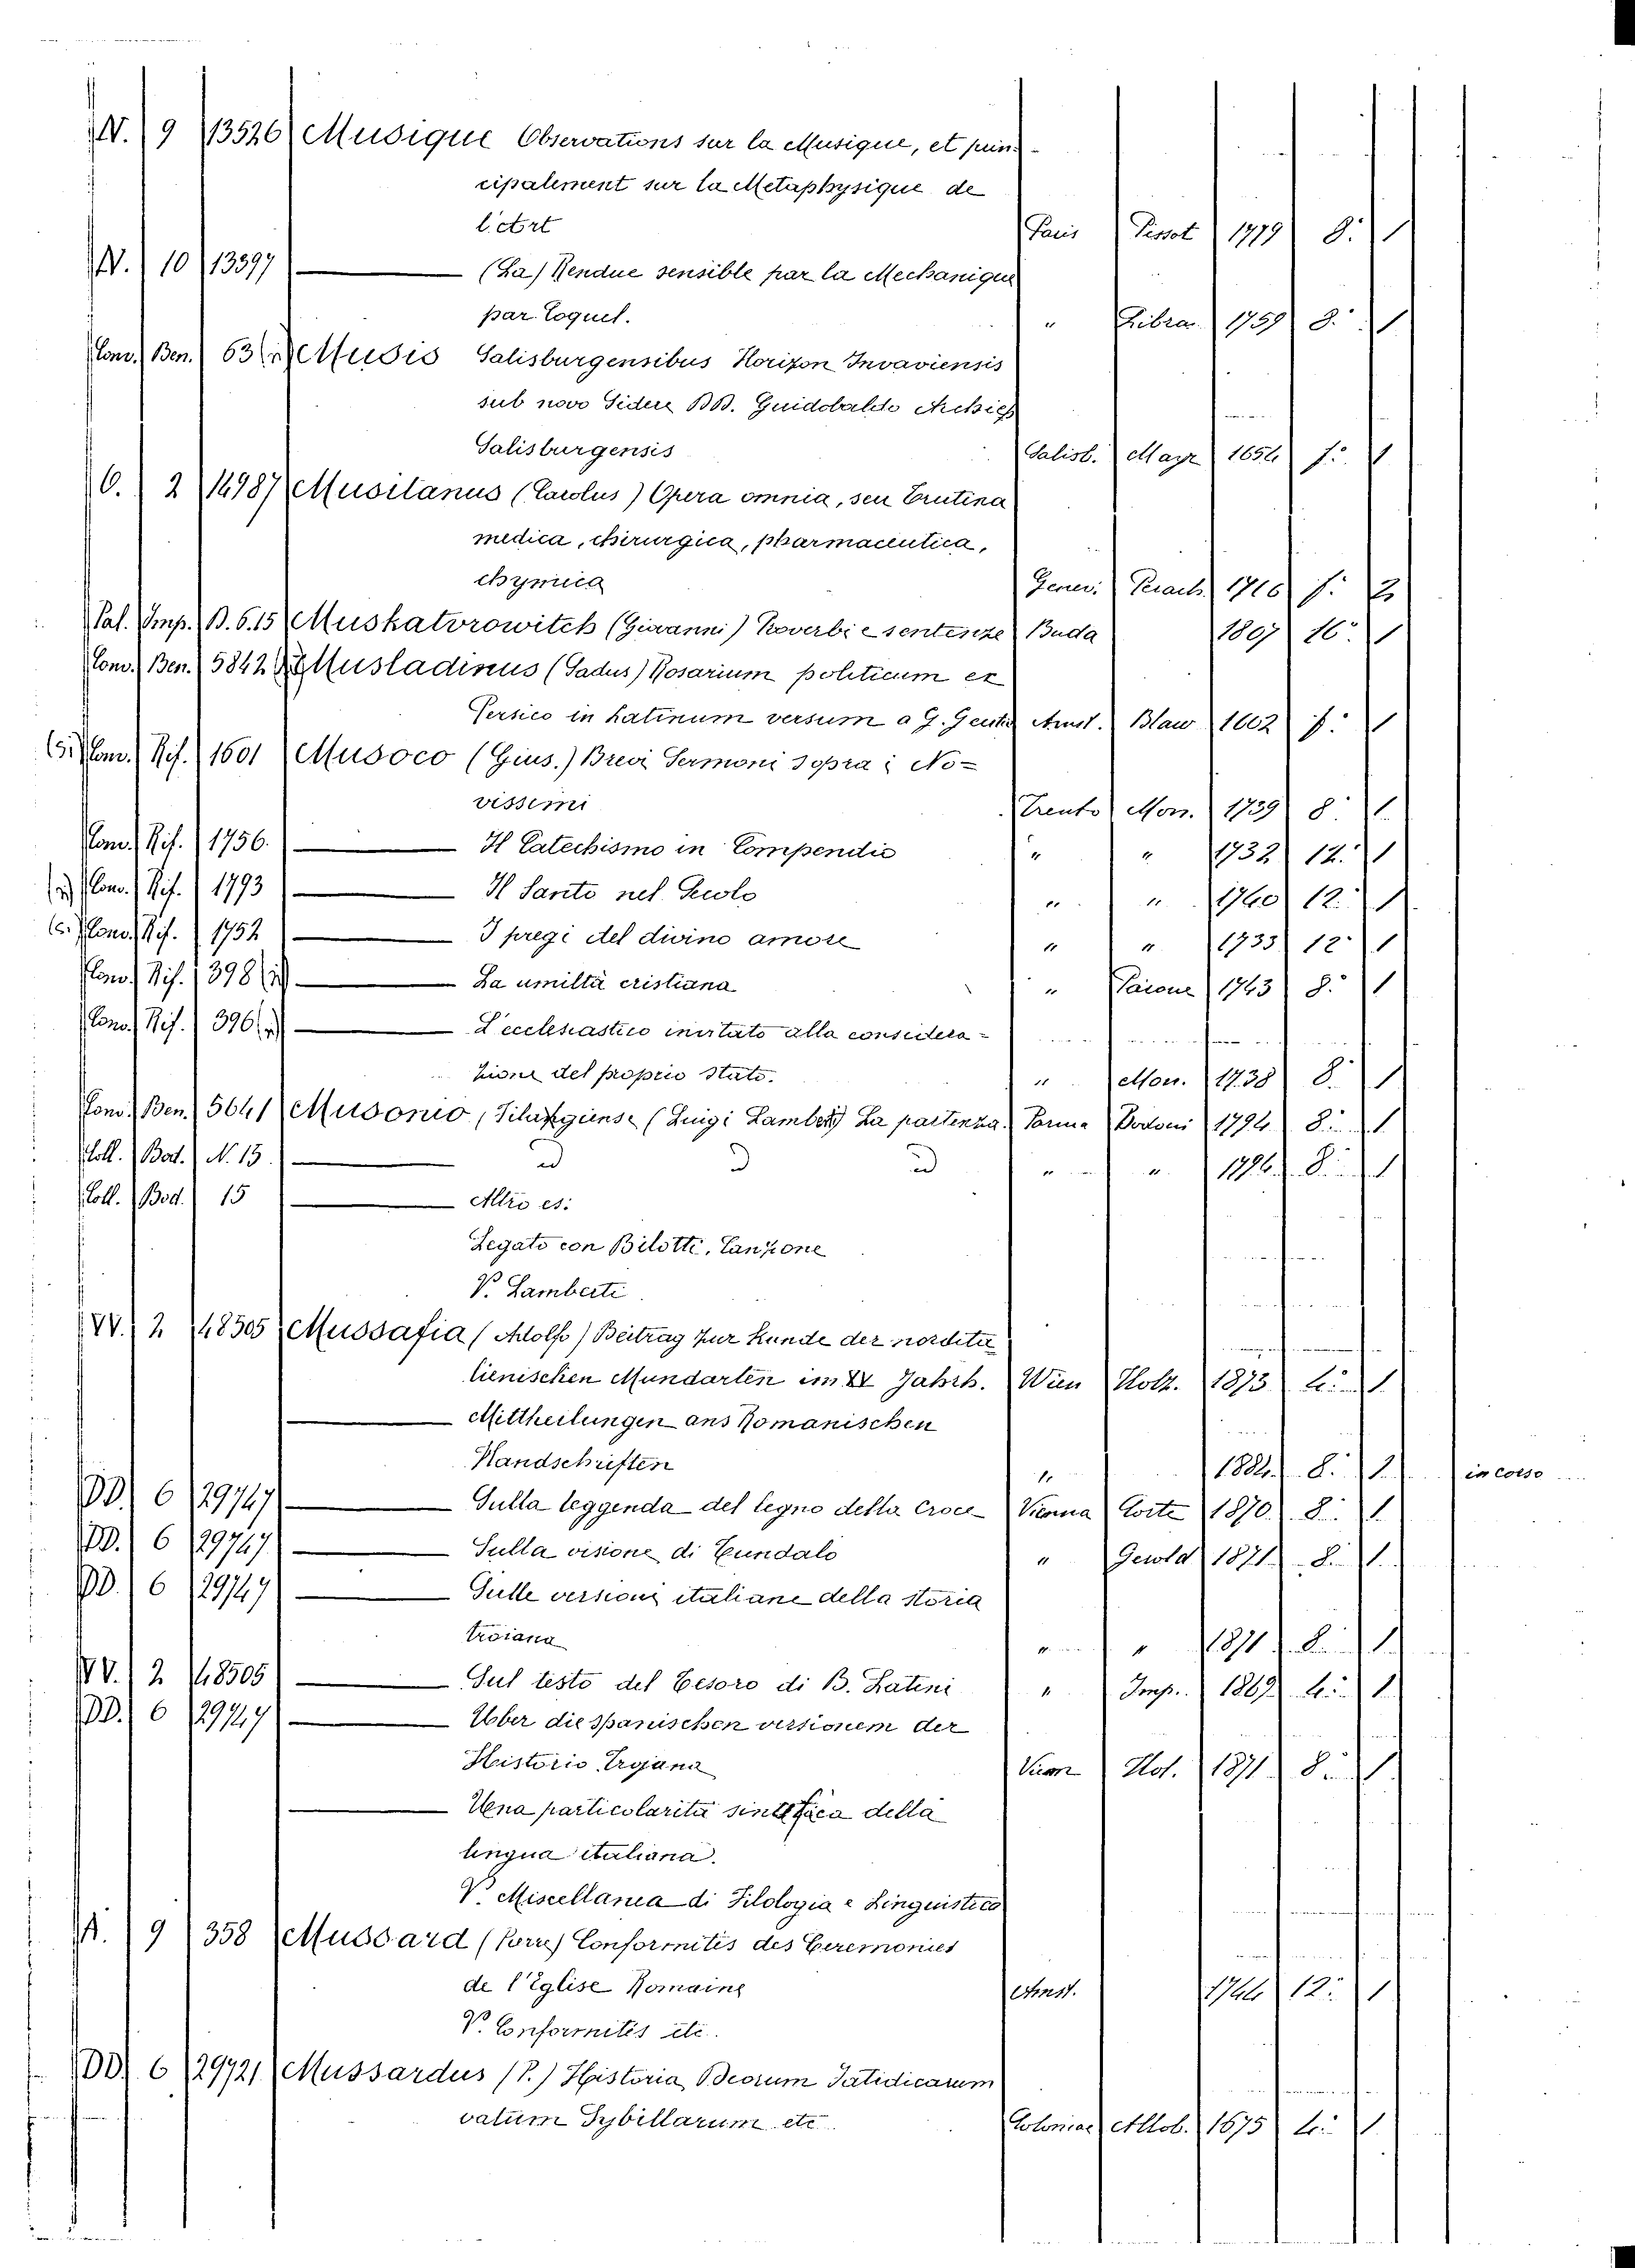 N. 9 13526 Musique Observations sur la Musique, et prin-
cipalement sur la Metaphysique de
l'Art Paris Pissot 1779 8. 1
N. 10 13397 (La) Rendue sensible par la Mechanique
par Coquel. " 1759 8. 1
Conv. Ben. 63 Musis Salisburgensibus Horizon Invaviensis
sub novo Sidere BB. Guidobaldo Archiep
Salisburgensis Salisb. Mayr 1654 f. 1
O. 2 14987 Musitanus (Carolus) Opera omnia, seu Trutina
medica, chirurgica, pharmaceutica,
chymica Genev. 1716 f. 2
Pal. Imp. B. 6.15 Muskatorowitch (Giovanni) Proverbi e sentenze Buda 1807 16. 1
Conv. Ben. 5842 Musladinus (Sadus) Rosarium politicum ex
Persico in Latinum versum a G. Amst. Blaw 1662 f. 1
Conv. Rif. 1601 Musoco (Gius.) Brevi Sermoni sopra i No=
vissimi Trento Mon. 1739 8. 1
Conv. Rif. 1756. Il Catechismo in Compendio " " 1732 12. 1
Conv. Rif. 1793 Il Santo nel Secolo " " 1760 12. 1
Conv. Rif. 1752 I pregi del divino amore " " 1733 12. 1
Conv. Rif. 398 La umiltà cristiana " Parone 1743 8. 1
Conv. Rif. 396 L'ecclesiastico invitato alla considera=
zione del proprio stato. " Mon. 1738 8. 1
Conv. Ben. 5641 Musonio, (Luigi Lamberti) La partenza Parma Bodoni 1794 8. 1
Coll. Bod. N. 15. id id id " " 1796 8. 1
Coll. Bod. 15 Altro es:
Legato con Bilotti, Canzone
V. Lamberti
VV. 2 48505 Mussafia (Adolfo) Beitrag zur Kunde der nordita
lienischen Mundarten im XV Jahrh. Wien Holz. 1873 4. 1
Mittheilungen aus Romanischen
Handschriften " 1884 8. 1 in corso
DD. 6 29747 Sulla leggenda del legno della Croce Vienna Corte 1870. 8. 1
DD. 6 29747 Sulla visione di Tundalo " Gerold 1871 8. 1
DD. 6 29747 Sulle versioni italiane della storia
troiana " " 1871 8. 1
VV. 2 48505 Sul testo del Tesoro di B. Latini " Imp. 1869 4. 1
DD. 6 29747 Uber die spanischen versionem der
Historia Trojana Hof. 1871 8. 1
Una particolarità sintattica della
lingua italiana.
V. Miscellanea di Filologia e Linguistica
A. 9 358 Mussard Conformités des Ceremonies
de l'Eglise Romaine Amst. 1744 12. 1
V. Conformités etc.
DD 6 29721 Mussardus (P.) Historia Deorum Fatidicarum
vatum Sybillarum etc. Coloniae Allob. 1675 4. 1